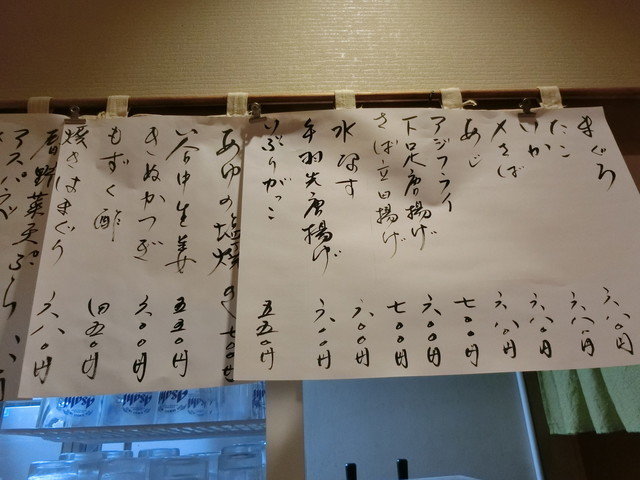 まぐろ 六八〇円
たこ 六八〇円
いか 六八〇円
〆さば 六八〇円
あじ 七〇〇円
アジフライ 六〇〇円
下足唐揚げ 七〇〇円
さば立田揚げ 六〇〇円
水なす 六〇〇円
手羽先唐揚げ
いぶりがっこ 五五〇円
あゆの塩焼
谷中生姜 五五〇円
きぬかつぎ 六〇〇円
もずく酢 四五〇円
焼きはまぐり 六八〇円
夏野菜天ぷら
アスパラ
Asahi